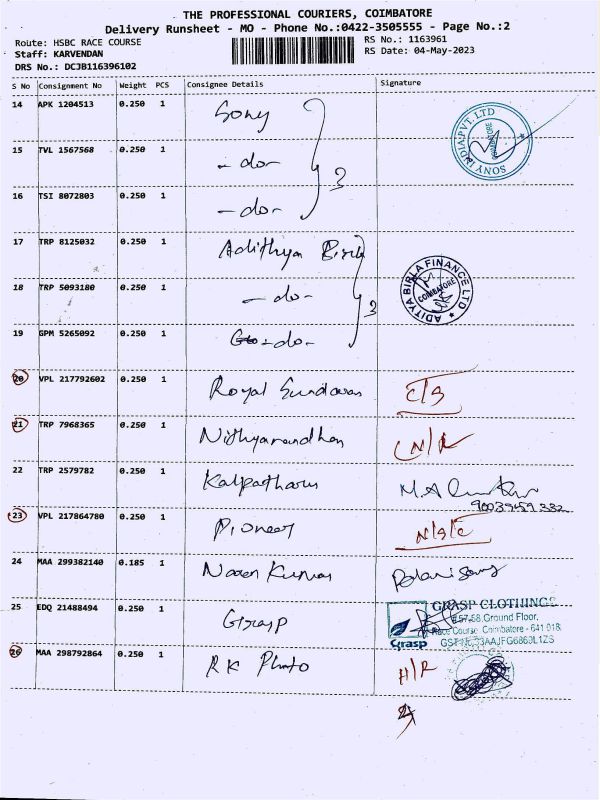 THE PROFESSIONAL COURIERS, COIMBATORE
Delivery Runsheet - MO - Phone No.:0422-3505555 - Page No.:2
Route: HSBC RACE COURSE
RS No.: 1163961
Staff: KARVENDAN
RS Date: 04-May-2023
DRS No.: DCJB116396102
S No Consignment No Weight PCS Consignee Details Signature
14 APK 1204513 0.250 1 Sony
SONY INDIA PVT. LTD
COIMBATORE
15 TVL 1567568 0.250 1 - do -
3
16 TSI 8072803 0.250 1 - do -
17 TRP 8125032 0.250 1 Adithya Birla
ADITYA BIRLA FINANCE LTD
COIMBATORE
18 TRP 5093180 0.250 1 - do -
3
19 GPM 5265092 0.250 1 - do -
20 VPL 217792602 0.250 1 Royal Sundaram C/S
21 TRP 7968365 0.250 1 Nithyanandhan N/R
22 TRP 2579782 0.250 1 Kalpatharu M.A
23 VPL 217864780 0.250 1 Pioneer N/S/C
24 MAA 299382140 0.185 1 Naren Kumar
25 EDQ 21488494 0.250 1 Grasp
GRASP CLOTHINGS
Ground Floor,
Race Course, Coimbatore - 641 018
Grasp
26 MAA 298792864 0.250 1 RK Photo H/R